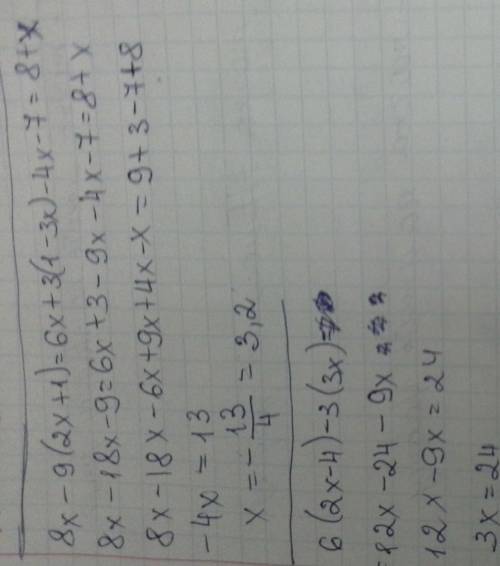 8x-9(2x+1)=6x+3(1-3x)-4x-7=8+x
8x-18x-9=6x+3-9x-4x-7=8+x
8x-18x-6x+9x+4x-x=9+3-7+8
-4x=13
x=-13/4=3,2
6(2x-4)-3(3x)=
=12x-24-9x
12x-9x=24
-3x=24